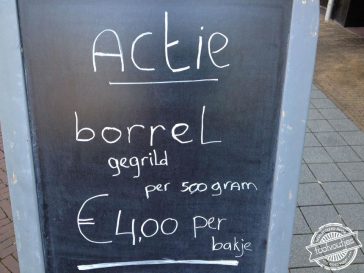 Actie
borrel
gegrild
per 500 gram
€ 4,00 per
bakje